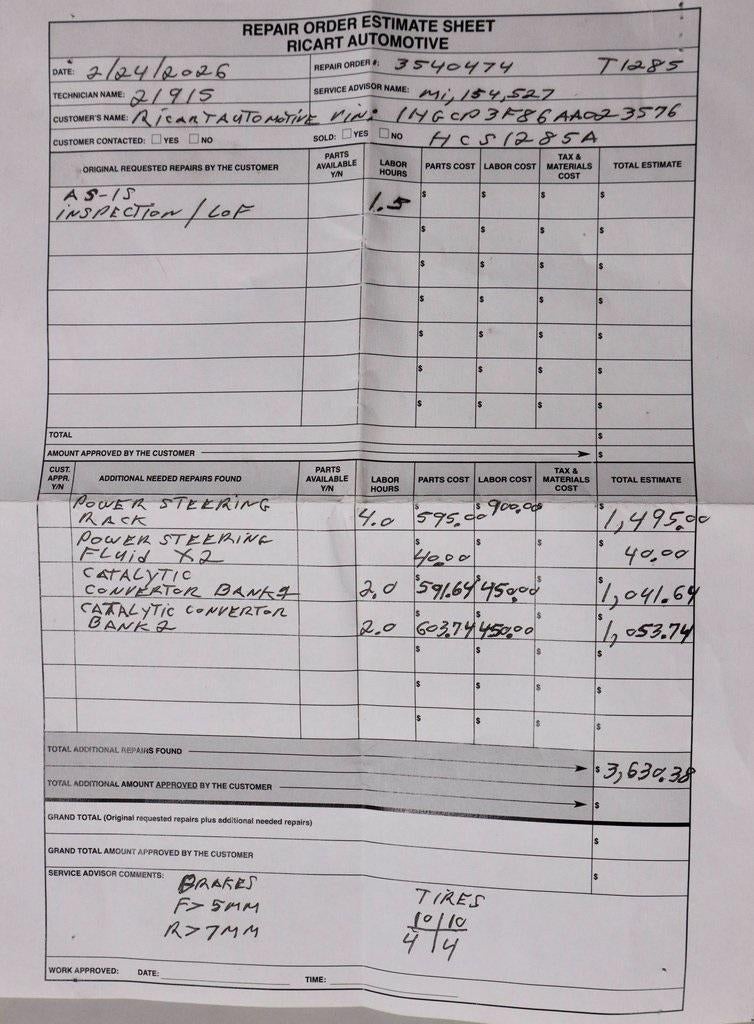 REPAIR ORDER ESTIMATE SHEET
RICART AUTOMOTIVE
DATE: 2/24/2026 REPAIR ORDER #: 3540474 T1285
TECHNICIAN NAME: 21915 SERVICE ADVISOR NAME: Mi, 154,527
CUSTOMER'S NAME: RICART AUTOMOTIVE Vin: 1HGCP3F86AA023576
CUSTOMER CONTACTED: YES NO SOLD: YES NO HCS1285A
ORIGINAL REQUESTED REPAIRS BY THE CUSTOMER PARTS AVAILABLE Y/N LABOR HOURS PARTS COST LABOR COST TAX & MATERIALS COST TOTAL ESTIMATE
AS-IS $ $ $ $
INSPECTION / LOF 1.5
$ $ $ $
$ $ $ $
$ $ $ $
$ $ $ $
$ $ $ $
$ $ $ $
TOTAL $
AMOUNT APPROVED BY THE CUSTOMER $
CUST. APPR. Y/N ADDITIONAL NEEDED REPAIRS FOUND PARTS AVAILABLE Y/N LABOR HOURS PARTS COST LABOR COST TAX & MATERIALS COST TOTAL ESTIMATE
POWER STEERING
RACK 4.0 $595.00 $900.00 $ $1,495.00
POWER STEERING
FLUID X2 $40.00 $ $ $40.00
CATALYTIC
CONVERTOR BANK 1 2.0 $591.64 $450.00 $ $1,041.64
CATALYTIC CONVERTOR
BANK 2 2.0 $603.74 $450.00 $ $1,053.74
$ $ $ $
$ $ $ $
$ $ $ $
TOTAL ADDITIONAL REPAIRS FOUND $3,630.38
TOTAL ADDITIONAL AMOUNT APPROVED BY THE CUSTOMER $
GRAND TOTAL (Original requested repairs plus additional needed repairs) $
GRAND TOTAL AMOUNT APPROVED BY THE CUSTOMER $
SERVICE ADVISOR COMMENTS:
BRAKES TIRES
F> 5MM 10/10
R> 7MM 4 | 4
WORK APPROVED: DATE: TIME: